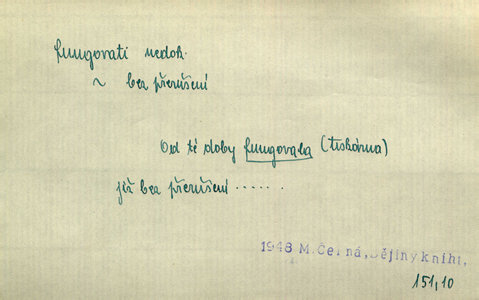 fungovati nedok.
~ bez přerušení
Od té doby fungovala (tiskárna)
již bez přerušení ......
1948 M.Černá,Dějiny kniht.
151,10